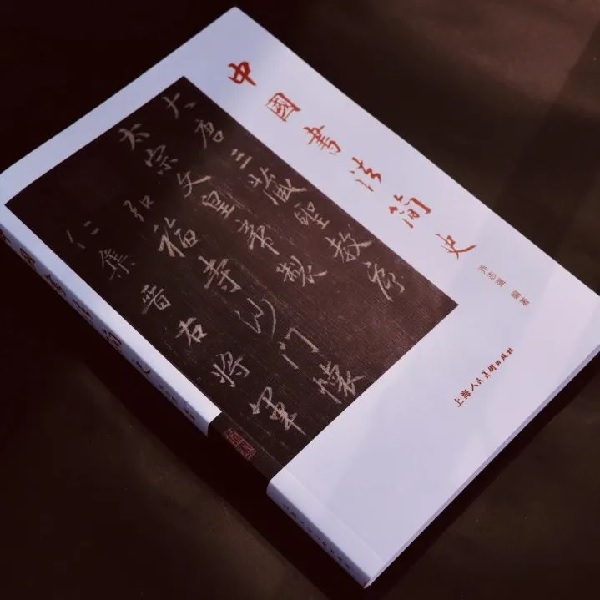 中國書法简史
編著
上海人民美術出版社
大唐三藏聖教序
太宗文皇帝製
弘福寺沙門懷
仁集晉右將軍